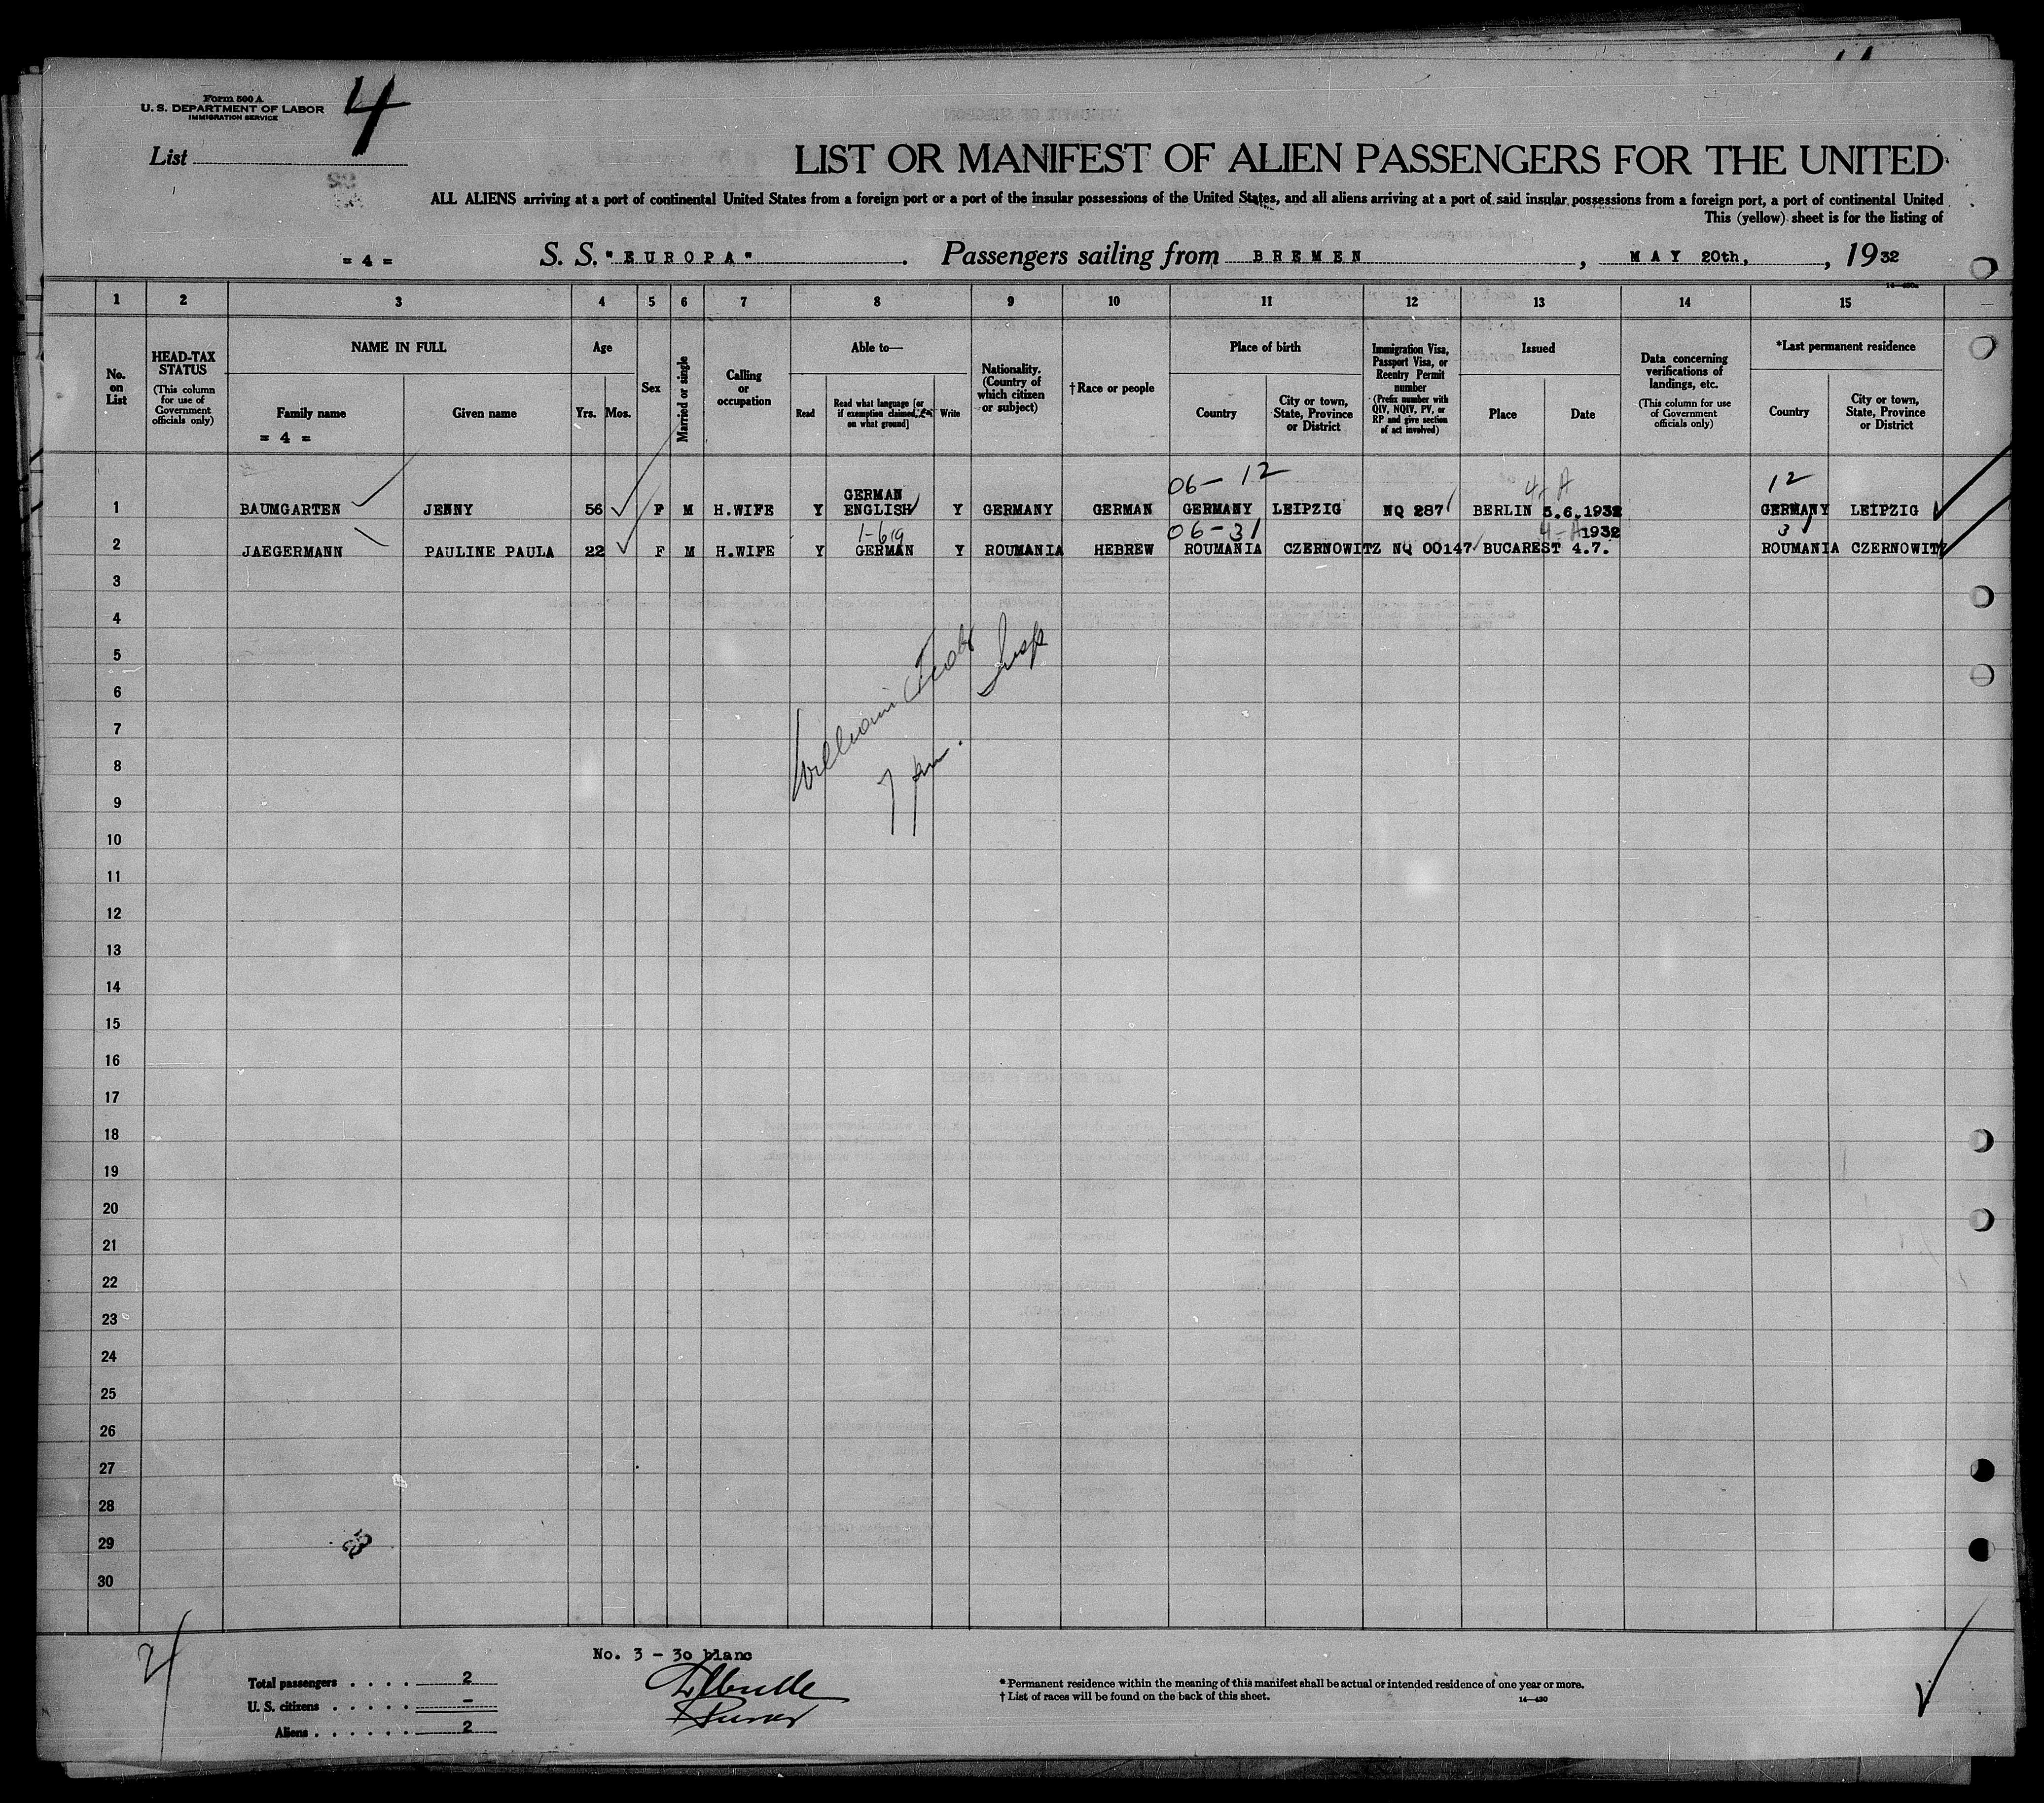 Form 500 A
U. S. DEPARTMENT OF LABOR
IMMIGRATION SERVICE
4
List
LIST OR MANIFEST OF ALIEN PASSENGERS FOR THE UNITED
ALL ALIENS arriving at a port of continental United States from a foreign port or a port of the insular possessions of the United States, and all aliens arriving at a port of said insular possessions from a foreign port, a port of continental United
This (yellow) sheet is for the listing of
= 4 = S. S. "EUROPA". Passengers sailing from BREMEN, MAY 20th,, 1932
14—430a
1 2 3 4 5 6 7 8 9 10 11 12 13 14 15
No. on List
HEAD-TAX STATUS
(This column for use of Government officials only)
NAME IN FULL
Family name
= 4 =
Given name
Age
Yrs. Mos.
Sex
Married or single
Calling or occupation
Able to—
Read
Read what language [or if exemption claimed, on what ground]
Write
Nationality. (Country of which citizen or subject)
†Race or people
Place of birth
Country
City or town, State, Province or District
Immigration Visa, Passport Visa, or Reentry Permit number
(Prefix number with QIV, NQIV, PV, or RP and give section of act involved)
Issued
Place
Date
Data concerning verifications of landings, etc.
(This column for use of Government officials only)
*Last permanent residence
Country
City or town, State, Province or District
06-12 4-A 12
GERMAN
1 BAUMGARTEN JENNY 56 F M H.WIFE Y ENGLISH Y GERMANY GERMAN GERMANY LEIPZIG NQ 287 BERLIN 5.6.1932 GERMANY LEIPZIG
1-619 06-31 4-A 1932 31
2 JAEGERMANN PAULINE PAULA 22 F M H.WIFE Y GERMAN Y ROUMANIA HEBREW ROUMANIA CZERNOWITZ NQ 00147 BUCAREST 4.7. ROUMANIA CZERNOWITZ
3
4
5
6
7
8
9
10
11
12
13
14
15
16
17
18
19
20
21
22
23
24
25
26
27
28
29
30
William Insp
7 pm.
No. 3 - 30 blanc
Total passengers . . . . 2
U. S. citizens . . . . . -
Aliens . . . . . . 2
Purser
*Permanent residence within the meaning of this manifest shall be actual or intended residence of one year or more.
†List of races will be found on the back of this sheet.
14—430